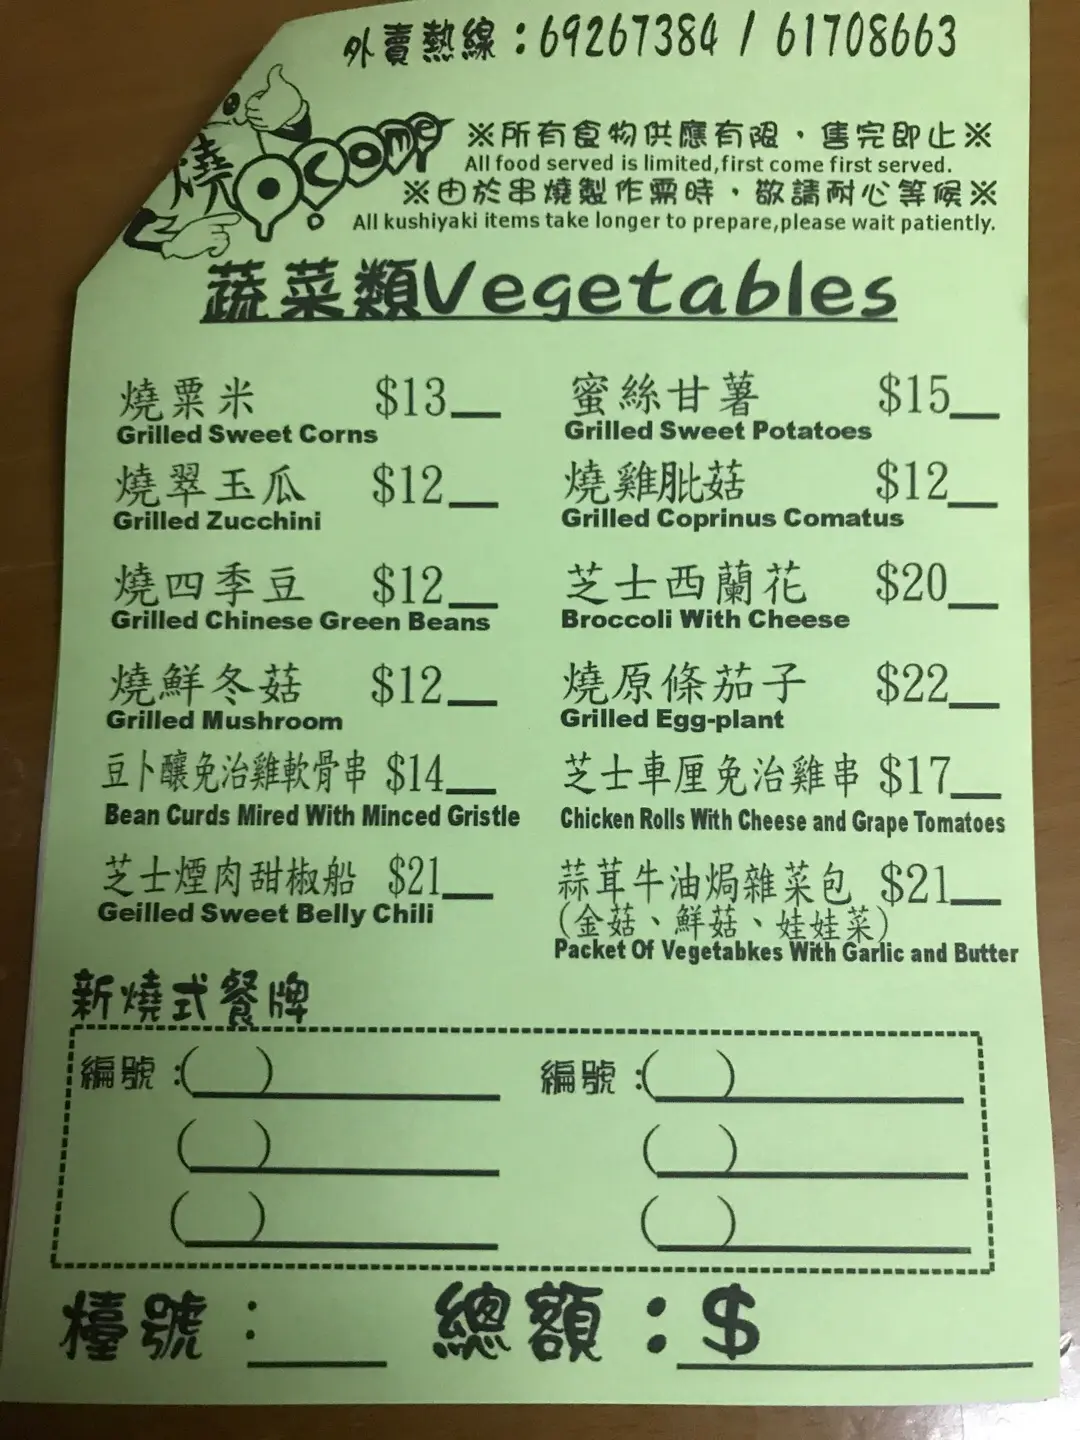 外賣熱線：69267384 / 61708663
燒 ocome
※所有食物供應有限，售完即止※
All food served is limited,first come first served.
※由於串燒製作需時，敬請耐心等候※
All kushiyaki items take longer to prepare,please wait patiently.
蔬菜類Vegetables
燒粟米 $13__
Grilled Sweet Corns
蜜絲甘薯 $15__
Grilled Sweet Potatoes
燒翠玉瓜 $12__
Grilled Zucchini
燒雞肶菇 $12__
Grilled Coprinus Comatus
燒四季豆 $12__
Grilled Chinese Green Beans
芝士西蘭花 $20__
Broccoli With Cheese
燒鮮冬菇 $12__
Grilled Mushroom
燒原條茄子 $22__
Grilled Egg-plant
豆卜釀免治雞軟骨串 $14__
Bean Curds Mired With Minced Gristle
芝士車厘免治雞串 $17__
Chicken Rolls With Cheese and Grape Tomatoes
芝士煙肉甜椒船 $21__
Geilled Sweet Belly Chili
蒜茸牛油焗雜菜包 $21__
(金菇、鮮菇、娃娃菜)
Packet Of Vegetabkes With Garlic and Butter
新燒式餐牌
編號：( )________ 編號：( )________
( )________ ( )________
( )________ ( )________
檯號：____ 總額：$________